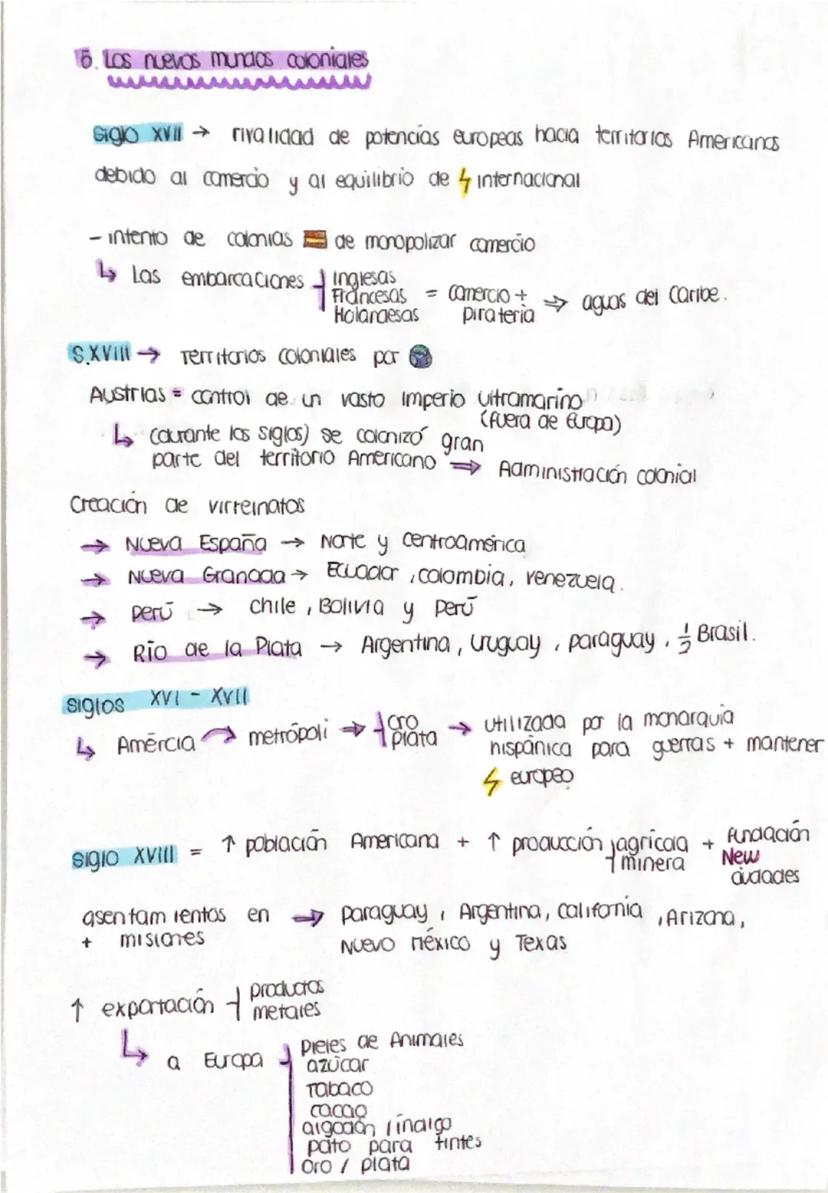 5. Los nuevos mundos coloniales
Siglo XVII → rivalidad de potencias europeas hacia territorios Americanos
debido al comercio y al equilibrio de ⚡ internacional
- intento de colonias 🇪🇸 de monopolizar comercio
↳ Las embarcaciones
Inglesas
Francesas
Holandesas
= comercio +
piratería
⇒ aguas del Caribe.
S.XVIII → Territorios coloniales por 🌍
Austrias = control de un vasto imperio ultramarino
(fuera de Europa)
↳ (durante los siglos) se colonizó gran
parte del territorio Americano ⇒ Administración colonial
Creación de virreinatos
→ Nueva España → Norte y Centroamérica
→ Nueva Granada → Ecuador, Colombia, Venezuela.
→ Perú → Chile, Bolivia y Perú
→ Río de la Plata → Argentina, Uruguay, Paraguay, ½ Brasil.
Siglos XVI - XVII
↳ Amércia → metrópoli ⇒
oro
plata
→ utilizada por la monarquía
hispánica para guerras + mantener
⚡ europeo
Siglo XVIII = ↑ población Americana + ↑ producción
agrícola
minera
+ Fundación
New
ciudades
asentamientos en
+ misiones
⇒ Paraguay, Argentina, California, Arizona,
Nuevo México y Texas
↑ exportación
productos
metales
↳ a Europa
Pieles de Animales
azúcar
Tabaco
cacao
algodón / índigo
pato para tintes
Oro / plata